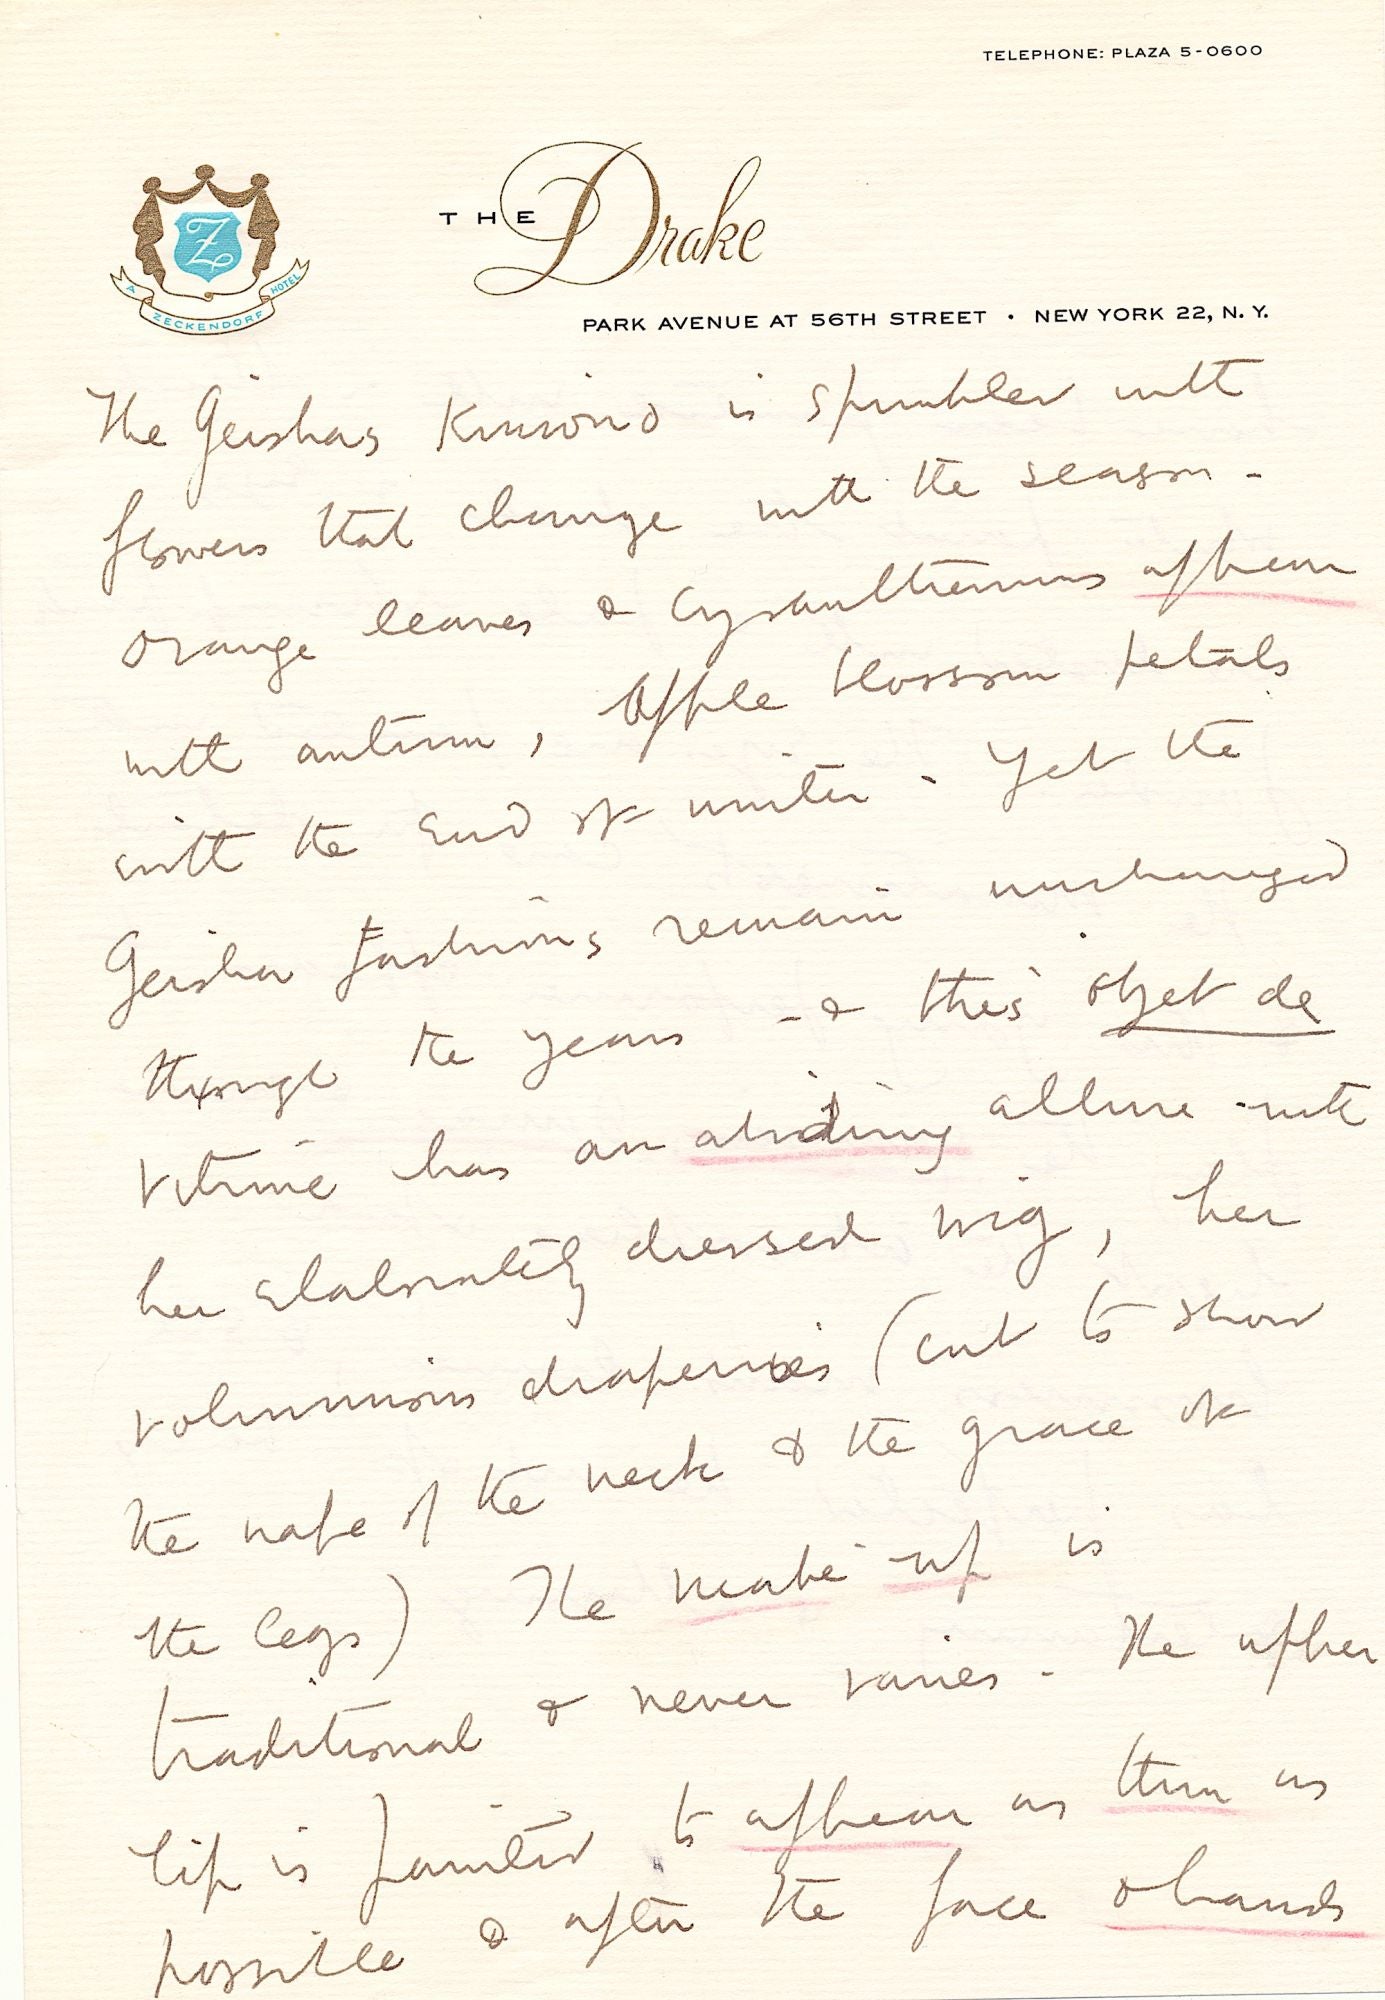 TELEPHONE: PLAZA 5-0600
Z
A ZECKENDORF HOTEL
THE Drake
PARK AVENUE AT 56TH STREET · NEW YORK 22, N. Y.
The Geishas Kimono is sprinkled with
flowers that change with the season -
orange leaves & Crysanthemums appear
with autumn, Apple blossom petals
with the End of winter. Yet the
Geisha Fashions remain unchanged
through the years - & this objet de
vitrine has an abiding allure - with
her Elaborately dressed wig, her
voluminous draperies (cut to show
the nape of the neck & the grace of
the legs) The make-up is
traditional & never varies. The upper
lip is painted to appear as thin as
possible & after the face & hands